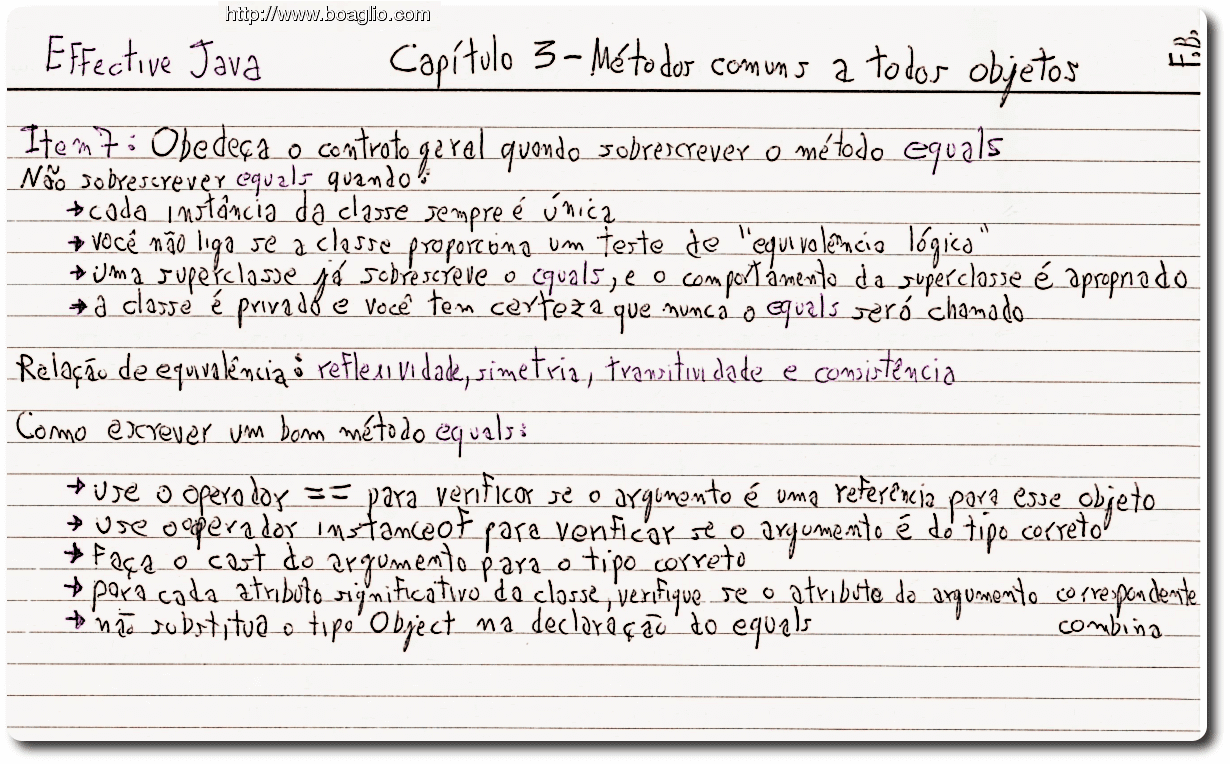 http://www.boaglio.com
Effective Java Capítulo 3 - Métodos comuns a todos objetos F.B.
Item 7: Obedeça o contrato geral quando sobrescrever o método equals
Não sobrescrever equals quando:
→ cada instância da classe sempre é única
→ você não liga se a classe proporciona um teste de "equivalência lógica"
→ uma superclasse já sobrescreve o equals, e o comportamento da superclasse é apropriado
→ a classe é privada e você tem certeza que nunca o equals será chamado
Relação de equivalência: reflexividade, simetria, transitividade e consistência
Como escrever um bom método equals:
→ use o operador == para verificar se o argumento é uma referência para esse objeto
→ use o operador instanceof para verificar se o argumento é do tipo correto
→ faça o cast do argumento para o tipo correto
→ para cada atributo significativo da classe, verifique se o atributo do argumento correspondente
combina
→ não substitua o tipo Object na declaração do equals